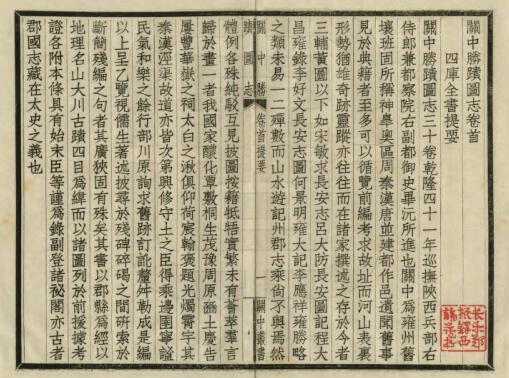 關中勝蹟圖志卷首
四庫全書提要
關中勝蹟圖志三十卷乾隆四十一年巡撫陝西兵部右
侍郎兼都察院右副都御史畢沅所進也關中爲雍州舊
壤班固所稱神皋奧區周秦漢唐並建都作邑遺聞舊事
見於典籍者至多可以循覽前編考求故址而河山表裏
形勢猶雄奇跡靈蹤亦往往而在諸家撰述之存於今者
三輔黃圖以下如宋敏求長安志呂大防長安圖記程大
昌雍錄李好文長安志圖何景明雍大記李應祥雍勝略
之類未易一二殫數而山水遊記州郡志乘尚不與焉然
關中勝
蹟圖志
卷首提要
一
關中叢書
體例各殊純駁互見披圖按籍牴牾實繁未有薈萃羣言
歸於畫一者我國家醲化覃敷桐生茂豫周原膴土慶告
屢豐華嶽之祠太白之湫俱仰荷宸翰褒題光燭霄宇其
秦漢涇渠故道亦皆次第興修守土之臣得乘邊圉寧謐
民氣和樂之餘行部川原詢求舊跡訂訛釐舛勒成是編
以上呈乙覽視儒生著述披尋於殘碑碎碣之間研索於
斷簡殘編之句者其廣狹固有殊矣其書以郡縣爲經以
地理名山大川古蹟四目爲緯而以諸圖列於前援據考
證各附本條具有始末臣等謹爲錄副登諸祕閣亦古者
郡國志藏在太史之義也